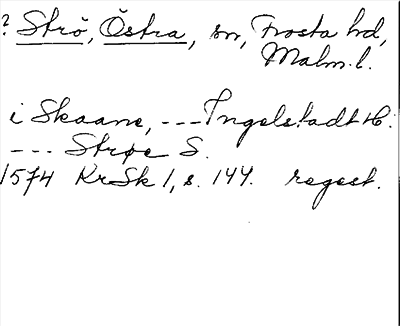 ? Strö, Östra, sn, Frosta hd,
Malm. l.
i Skaane, --- Ingelstadt H.
--- Strøe S.
1574 KrSk 1, s. 144. regest.